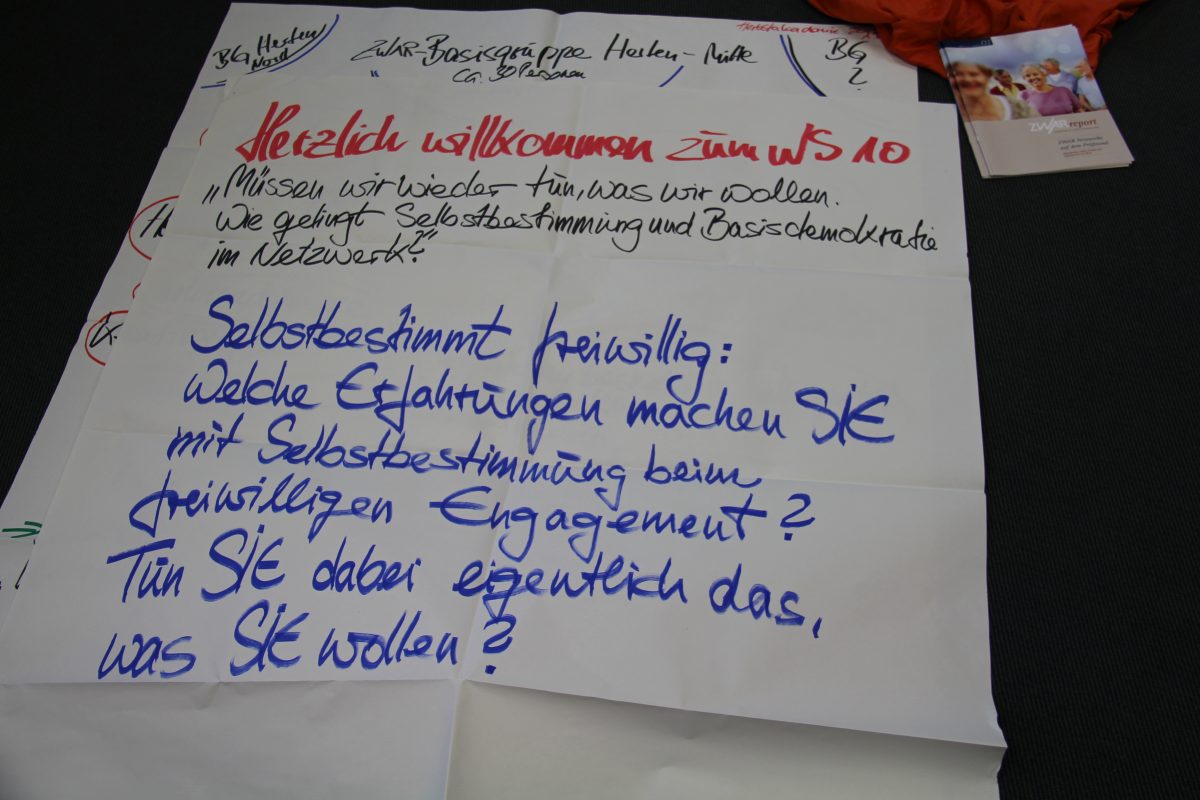 BG Herten
Nord
ZWAR-Basisgruppe Herten-Mitte
ca. 30 Personen
BG
?
Herzlich willkommen zum WS 10
„Müssen wir wieder tun, was wir wollen.
Wie gelingt Selbstbestimmung und Basisdemokratie
im Netzwerk?"
Selbstbestimmt freiwillig:
Welche Erfahrungen machen SIE
mit Selbstbestimmung beim
freiwilligen Engagement?
Tun SIE dabei eigentlich das,
was SIE wollen?
ZWAR report
ZWAR Netzwerke
auf dem Prüfstand